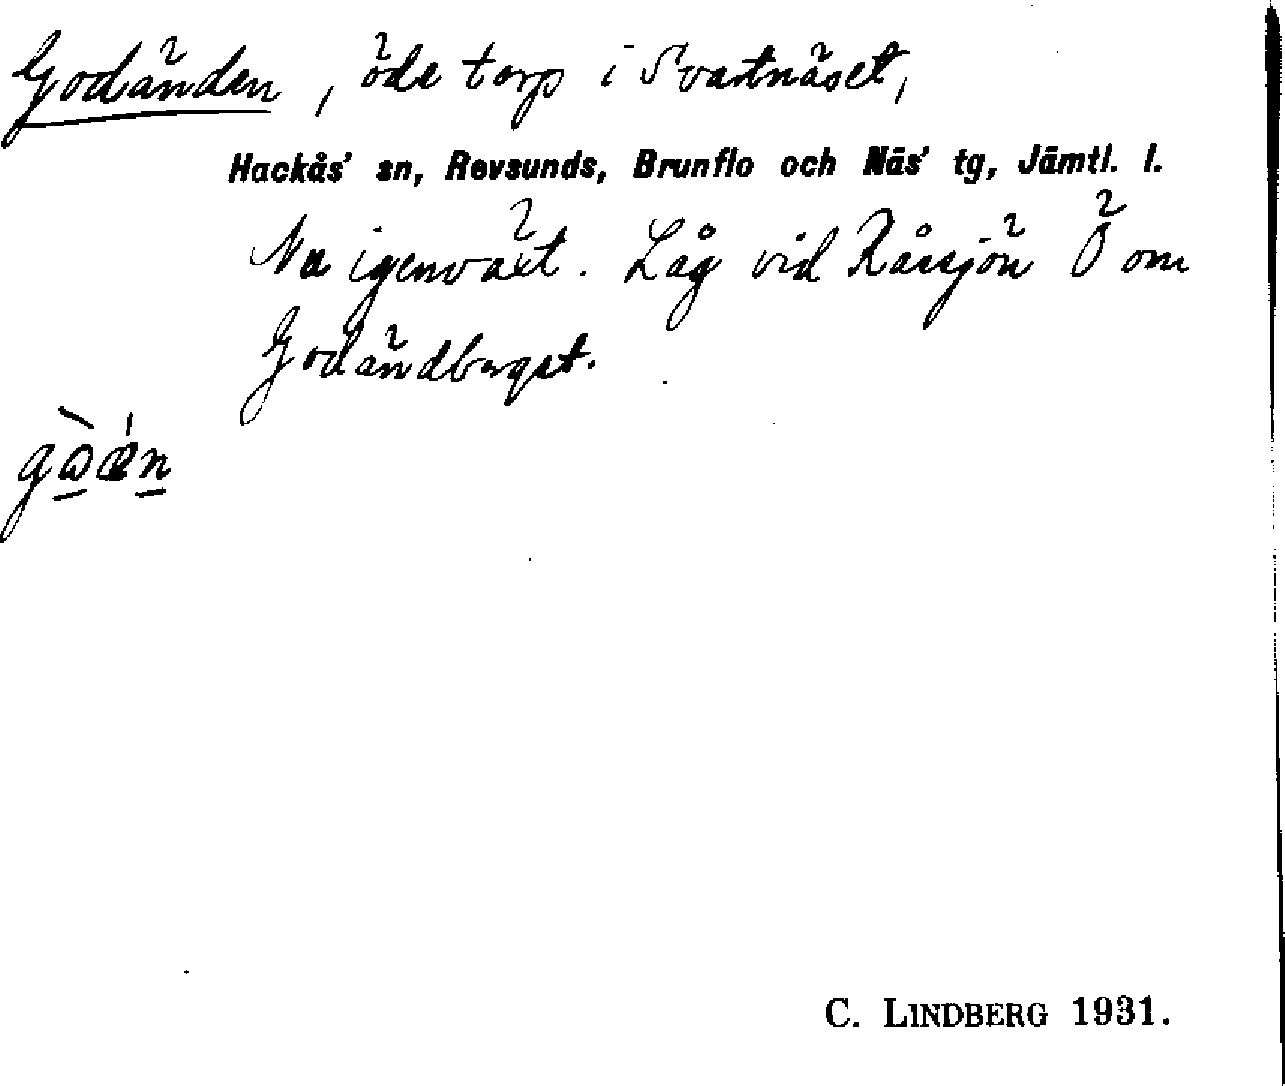 Godänden, öde torp i Svartnäset,
Hackås' sn, Revsunds, Brunflo och Näs' tg, Jämtl. l.
Nu igenväxt. Låg vid Råssjön Ö om
Godändberget.
C. LINDBERG 1931.